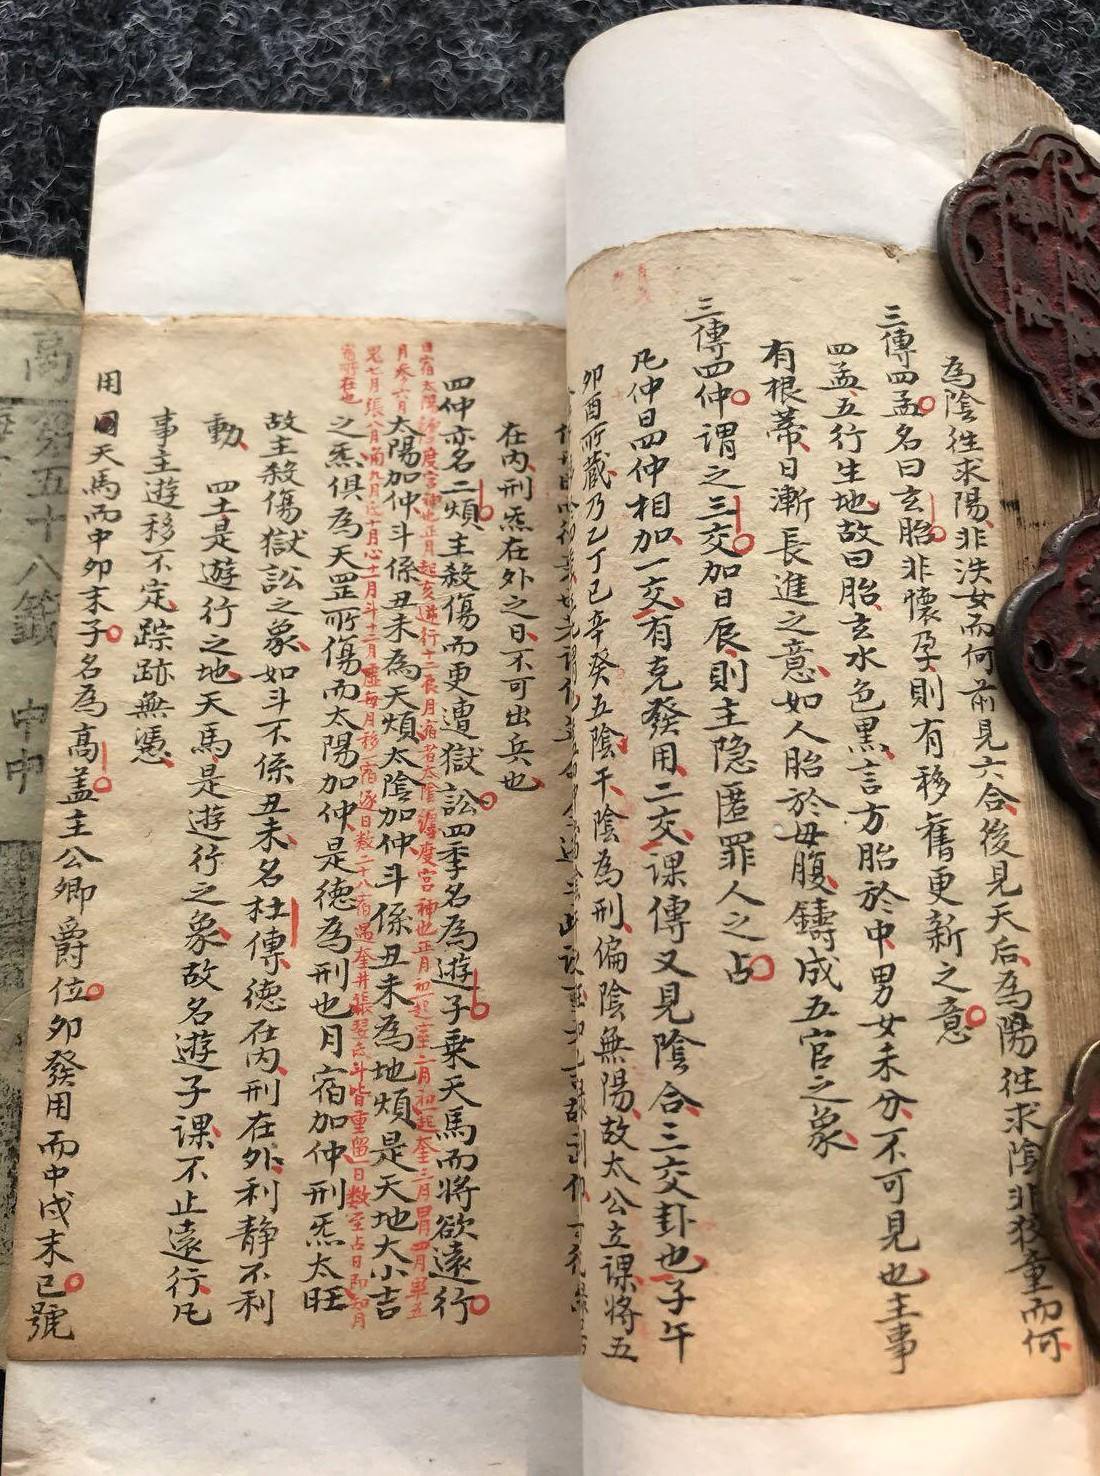 為陰往求陽非泆女而何前見六合後見天后為陽往求陰非狡童而何
三傳四孟名曰玄胎非懷孕則有移舊更新之意
四孟五行生地故曰胎玄水色黑言方胎於中男女未分不可見也主事
有根蒂日漸長進之意如人胎於母腹鑄成五官之象
三傳四仲謂之三交加日辰則主隐匿罪人之占
凡仲日四仲相加一交有克發用二交课傳又見陰合三交卦也子午
卯酉所藏乃乙丁己辛癸五陰干陰為刑偏陰無陽故太公立课將五
在內刑炁在外之日不可出兵也
四仲亦名二煩主殺傷而更遭獄訟四季名為遊子乗天馬而將欲遠行
日宿太陽躔度宮神也正月起亥逆行十二辰月宿者太陰躔度宮神也正月初起室二月初起奎三月胃四月畢五
月参六月
太陽加仲斗係丑未為天煩太陰加仲斗係丑未為地煩是天地大小吉
鬼七月張八月角九月氐十月心十一月斗十二月虛每月移一宿逐日数二十八宿遇奎井張翌氐斗皆重畄一日数至占日即知月
宿所在也
之炁俱為天罡所傷而太陽加仲是德為刑也月宿加仲刑炁太旺
故主殺傷獄訟之象如斗不係丑未名杜傳德在內刑在外利静不利
動 四土是遊行之地天馬是遊行之象故名遊子课不止遠行凡
事主遊移不定踪跡無憑
用 天馬而中卯末子名為高盖主公卿爵位卯發用而中戌末巳號
高
五十八籤 中中